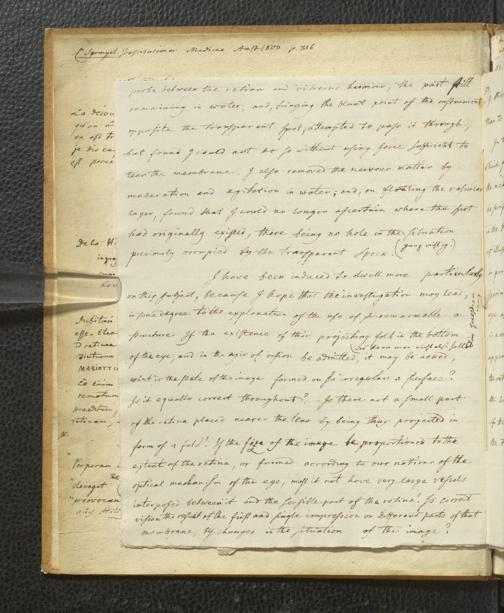 C. Sprengel. Institutiones Medicae Amst. 1800 p. 316
probe between the retina and vitreous humour, the part still
remaining in water, and, bringing the blunt point of the instrument
opposite the transparent spot, attempted to pass it through,
but found I could not do so without using force sufficient to
tear the membrane. I also removed the nervous matter by
maceration and agitation in water; and, on floating the vascular
layer, found that I could no longer ascertain where the spot
had originally existed, there being no hole in the situation
previously occupied by the transparent speck.
I have been induced to dwell more particularly
on this subject, because I hope that the investigation may lead,
in some degree to the explanation of the use of so remarkable a
structure. If the existence of this projecting fold in the bottom
of the eye, and in the axis of vision be admitted, it may be asked,
what is the state of the image formed on so irregular a surface?
Is it equally correct throughout? Is there not a small part
of the retina placed nearer the lens by being thus projected in
form of a fold? If the size of the image be proportioned to the
extent of the retina, or formed according to our notions of the
optical mechanism of the eye, must it not have very large vessels
interposed between it and the sensible part of the retina? Is correct
vision the result of the first and single impression on different parts of that
membrane, by changes in the situation of the image?
De la H
Dubitari
MARIOTTI
Et enim
remotum
retinae,